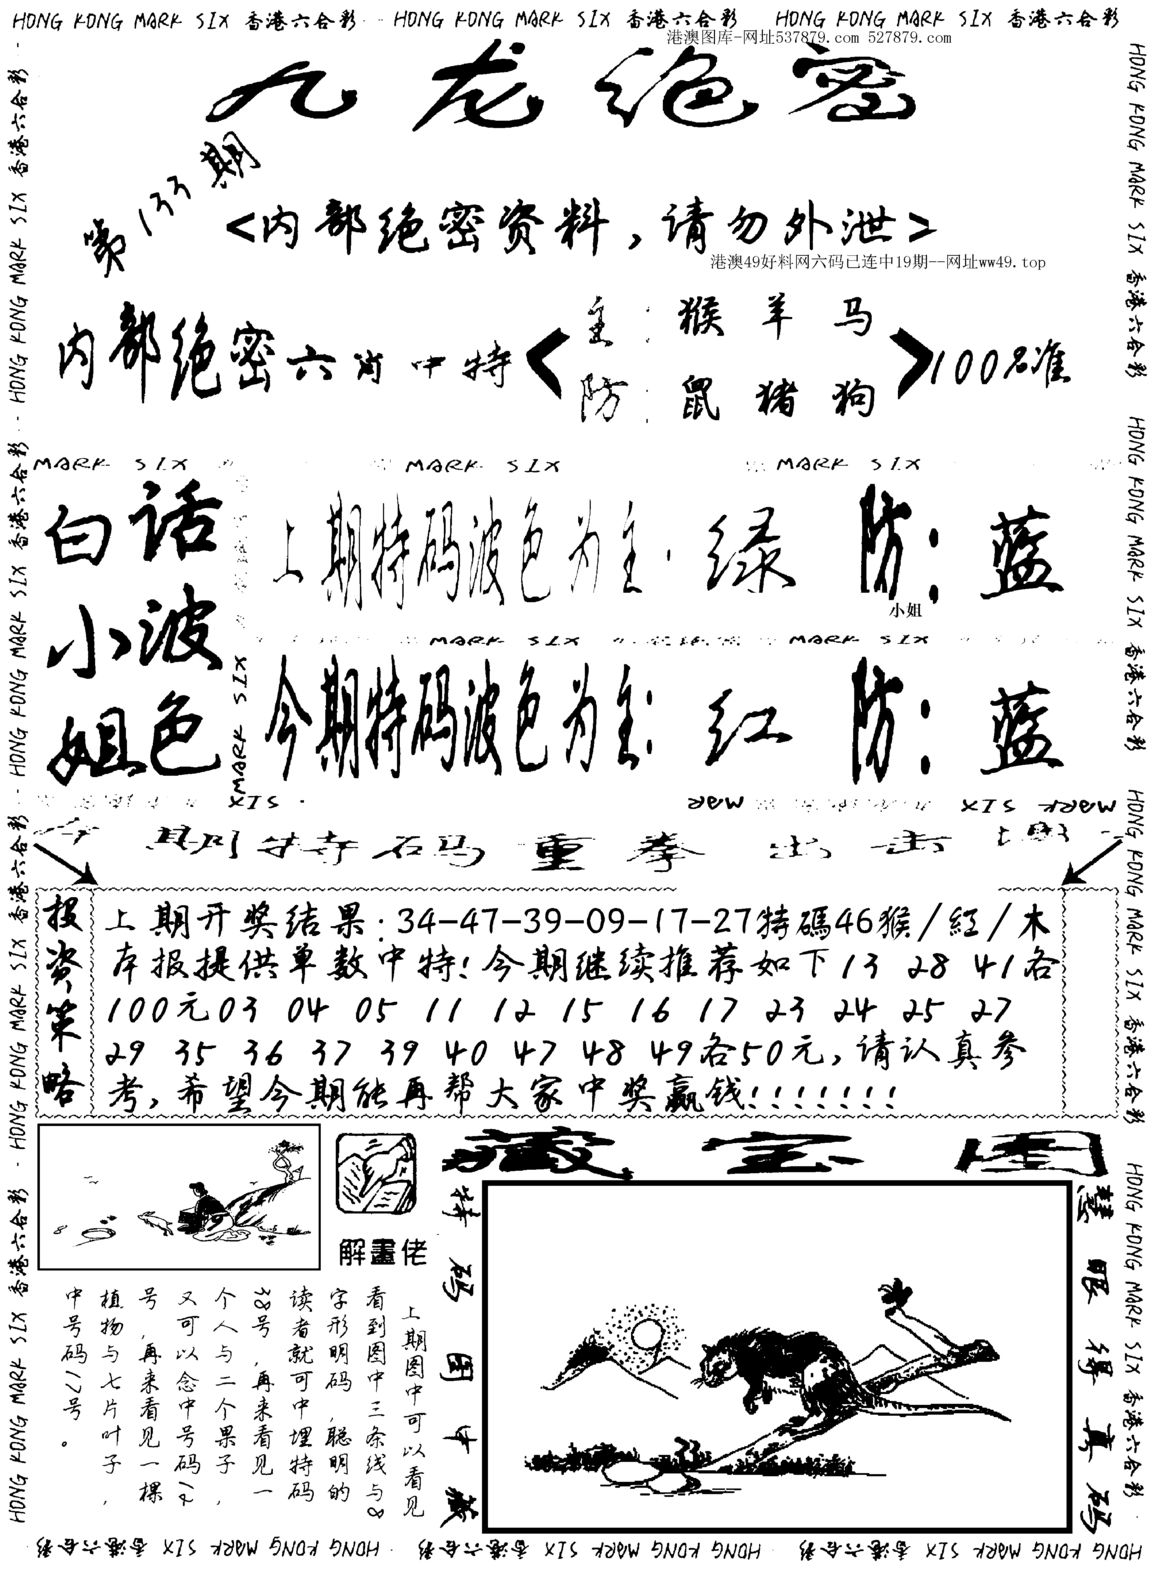 HONG KONG MARK SIX 香港六合彩 HONG KONG MARK SIX 香港六合彩 HONG KONG MARK SIX 香港六合彩
港澳图库-网址537879.com 527879.com
九龙绝密
第133期
<内部绝密资料,请勿外泄>
港澳49好料网六码已连中19期--网址ww49.top
内部绝密六肖中特
主:猴羊马
防:鼠猪狗
100%准
MARK SIX MARK SIX MARK SIX
白小姐
话波色
上期特码波色为主:绿 防:蓝
小姐
MARK SIX MARK SIX
MARK SIX
今期特码波色为主:红 防:蓝
SIX MAR MARK SIX
期特码重拳出击
投资策略
上期开奖结果:34-47-39-09-17-27特碼46猴/紅/木
本报提供单数中特!今期继续推荐如下13 28 41各
100元03 04 05 11 12 15 16 17 23 24 25 27
29 35 36 37 39 40 47 48 49各50元,请认真参
考,希望今期能再帮大家中奖赢钱!!!!!!!
藏宝图
解畫佬
上期图中可以看见
看到图中三条线与8
字形明码,聪明的
读者就可中埋特码
38号,再来看见一
个人与二个果子,
又可以念中号码12
号,再来看见一棵
植物与七片叶子,
中号码17号。
特码图中藏
慧眼得真码
HONG KONG MARK SIX 香港六合彩 HONG KONG MARK SIX 香港六合彩 HONG KONG MARK SIX 香港六合彩 HONG KONG MARK SIX 香港六合彩
HONG KONG MARK SIX 香港六合彩 HONG KONG MARK SIX 香港六合彩 HONG KONG MARK SIX 香港六合彩 HONG KONG MARK SIX 香港六合彩
HONG KONG MARK SIX 香港六合彩 HONG KONG MARK SIX 香港六合彩 HONG KONG MARK SIX 香港六合彩